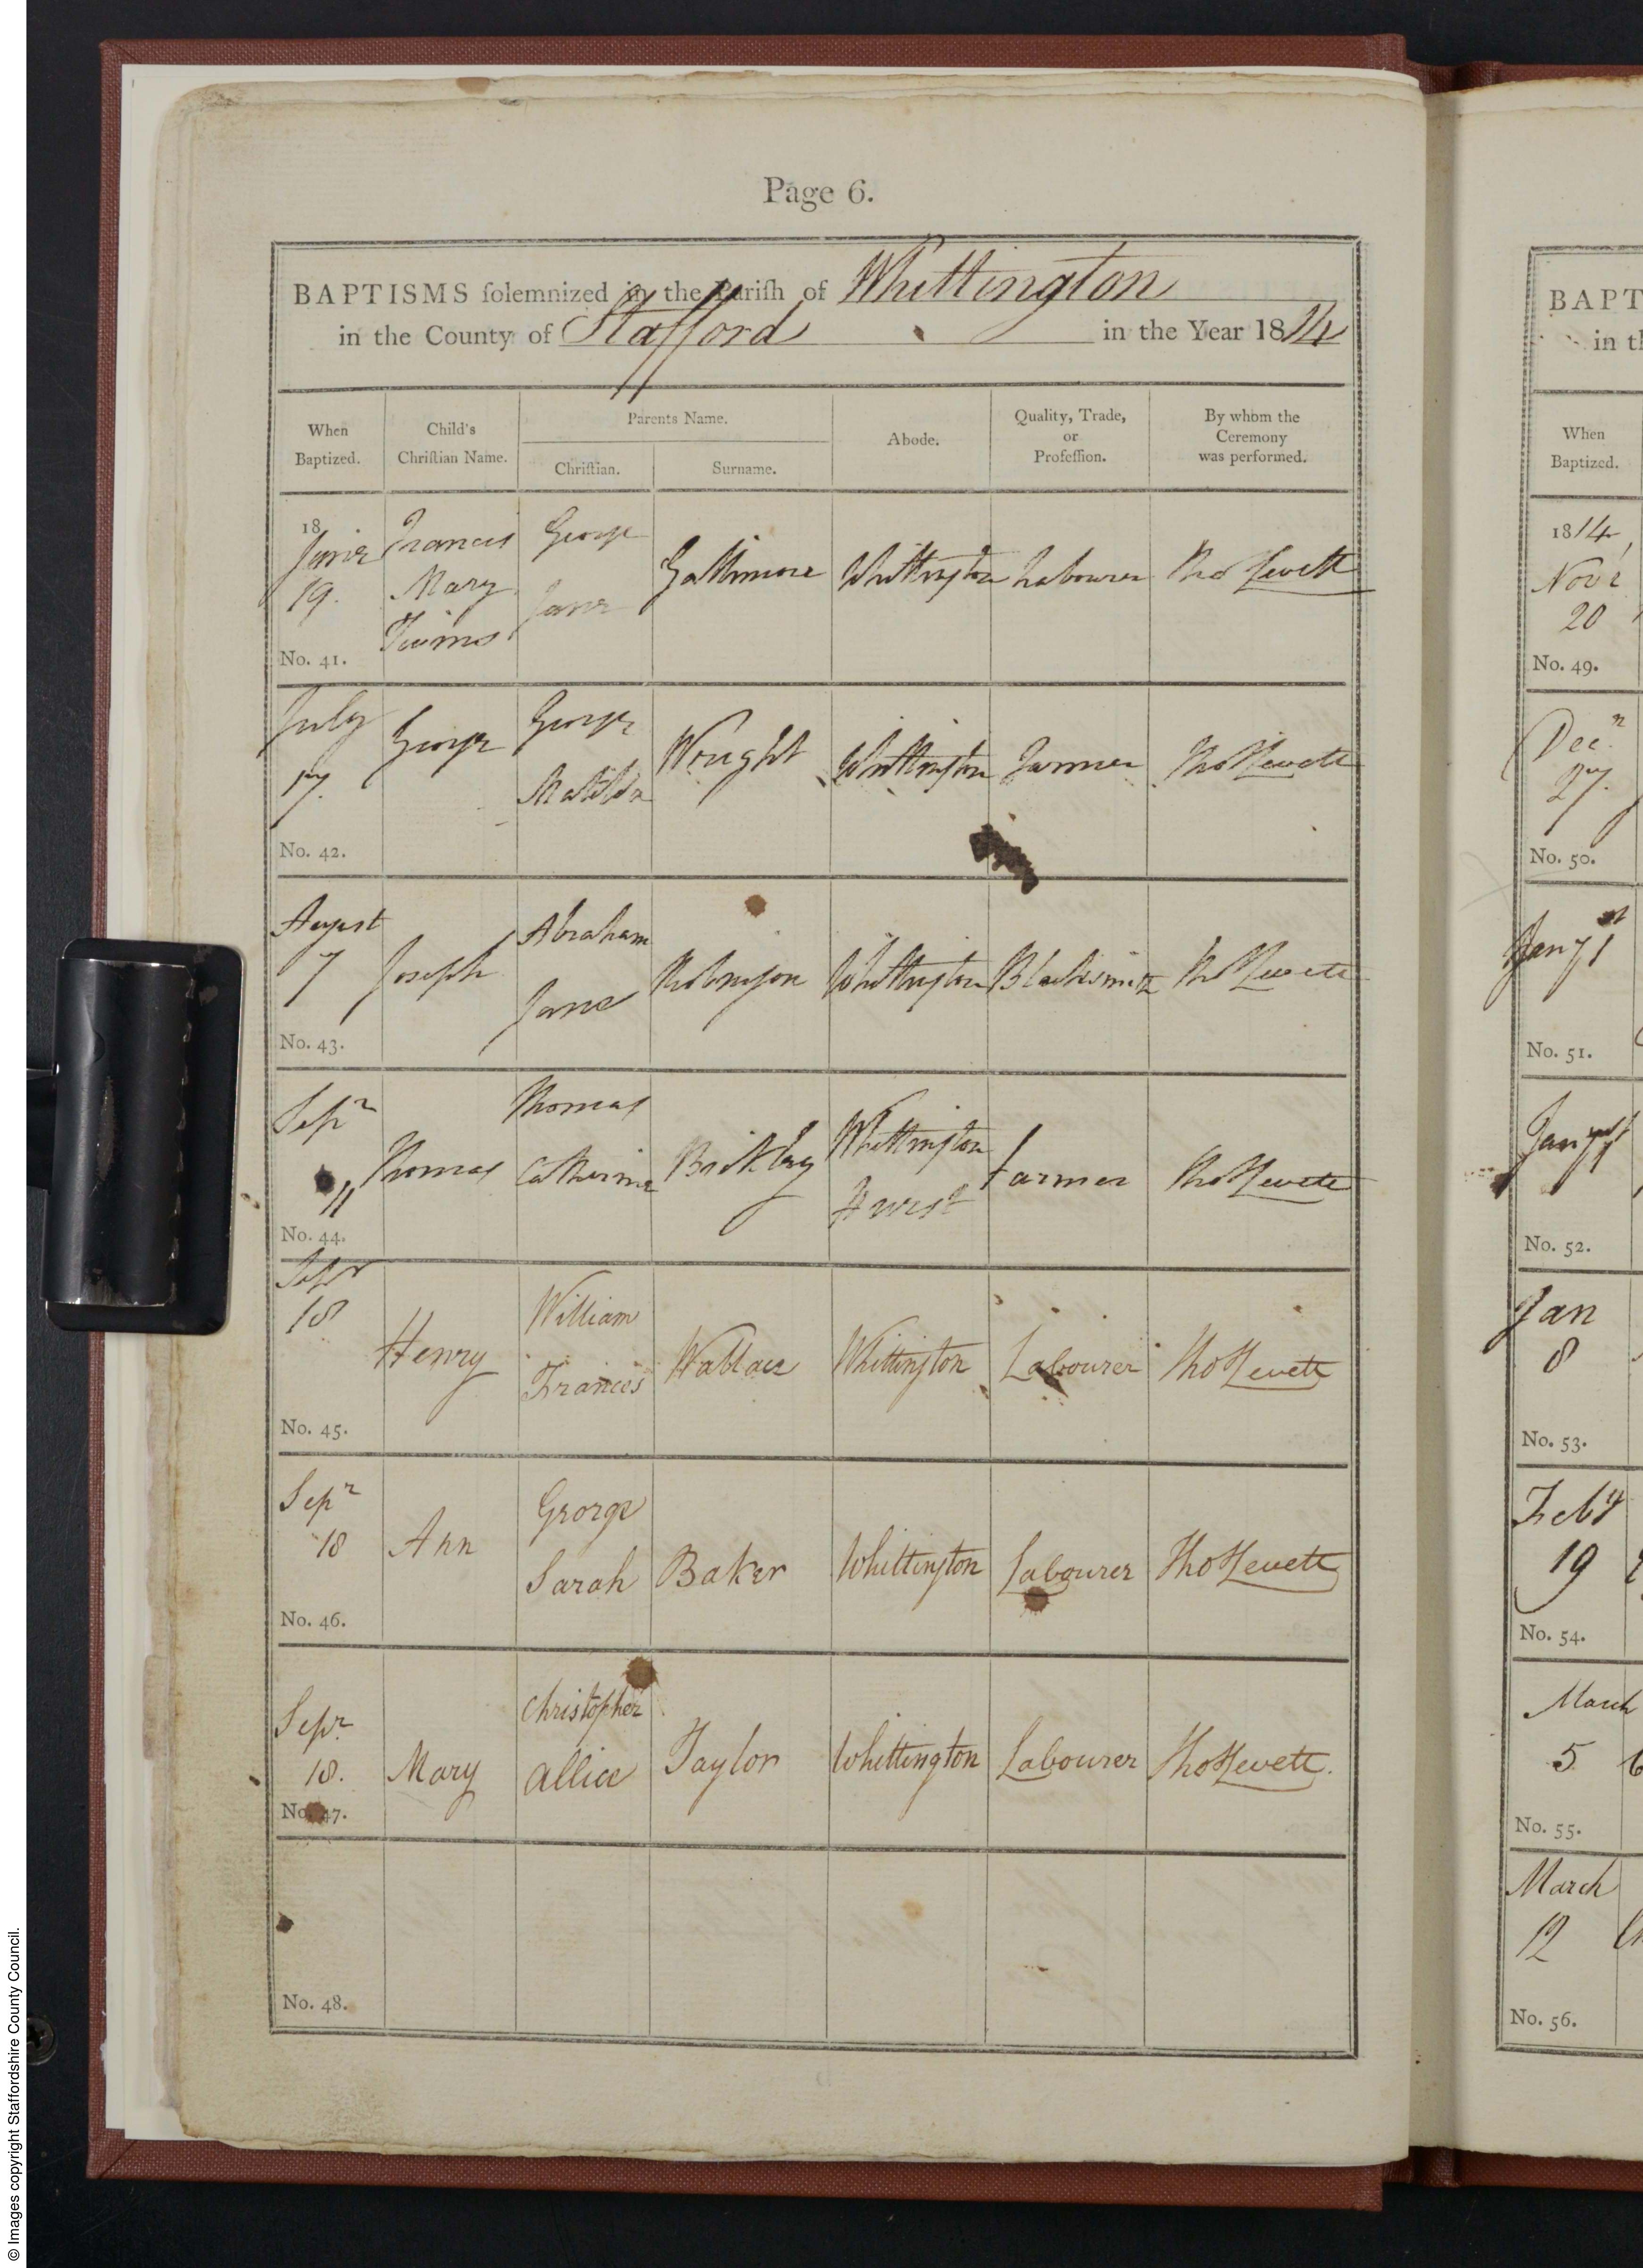 Page 6.
BAPTISMS solemnized in the Parish of Whittington
in the County of Stafford in the Year 1814
When Baptized.
Child's Christian Name.
Parents Name.
Christian.
Surname.
Abode.
Quality, Trade, or Profession.
By whom the Ceremony was performed.
18
June
19.
No. 41.
Frances
Mary
Twins
George
Jane
Gallimore
Whittington
Labourer
Tho Levett
July
17.
No. 42.
George
George
Matilda
Wright
Whittington
Farmer
Tho Levett
August
7
No. 43.
Joseph
Abraham
Jane
Robinson
Whittington
Blacksmith
Tho Levett
Sepr
11
No. 44.
Thomas
Thomas
Catherine
Whittington
Hurst
Farmer
Tho Levett
Sepr
18
No. 45.
Henry
William
Frances
Wallace
Whittington
Labourer
Tho Levett
Sepr
18
No. 46.
Ann
George
Sarah
Baker
Whittington
Labourer
Tho Levett
Sepr
18.
No. 47.
Mary
Christopher
Allice
Taylor
Whittington
Labourer
Tho Levett.
No. 48.
BAPT
in th
When Baptized.
1814
Novr
20
No. 49.
Decr
27.
No. 50.
Jany 1st
No. 51.
Jany 1st
No. 52.
Jan
8
No. 53.
Feby
19
No. 54.
March
5
No. 55.
March
12
No. 56.
© Images copyright Staffordshire County Council.